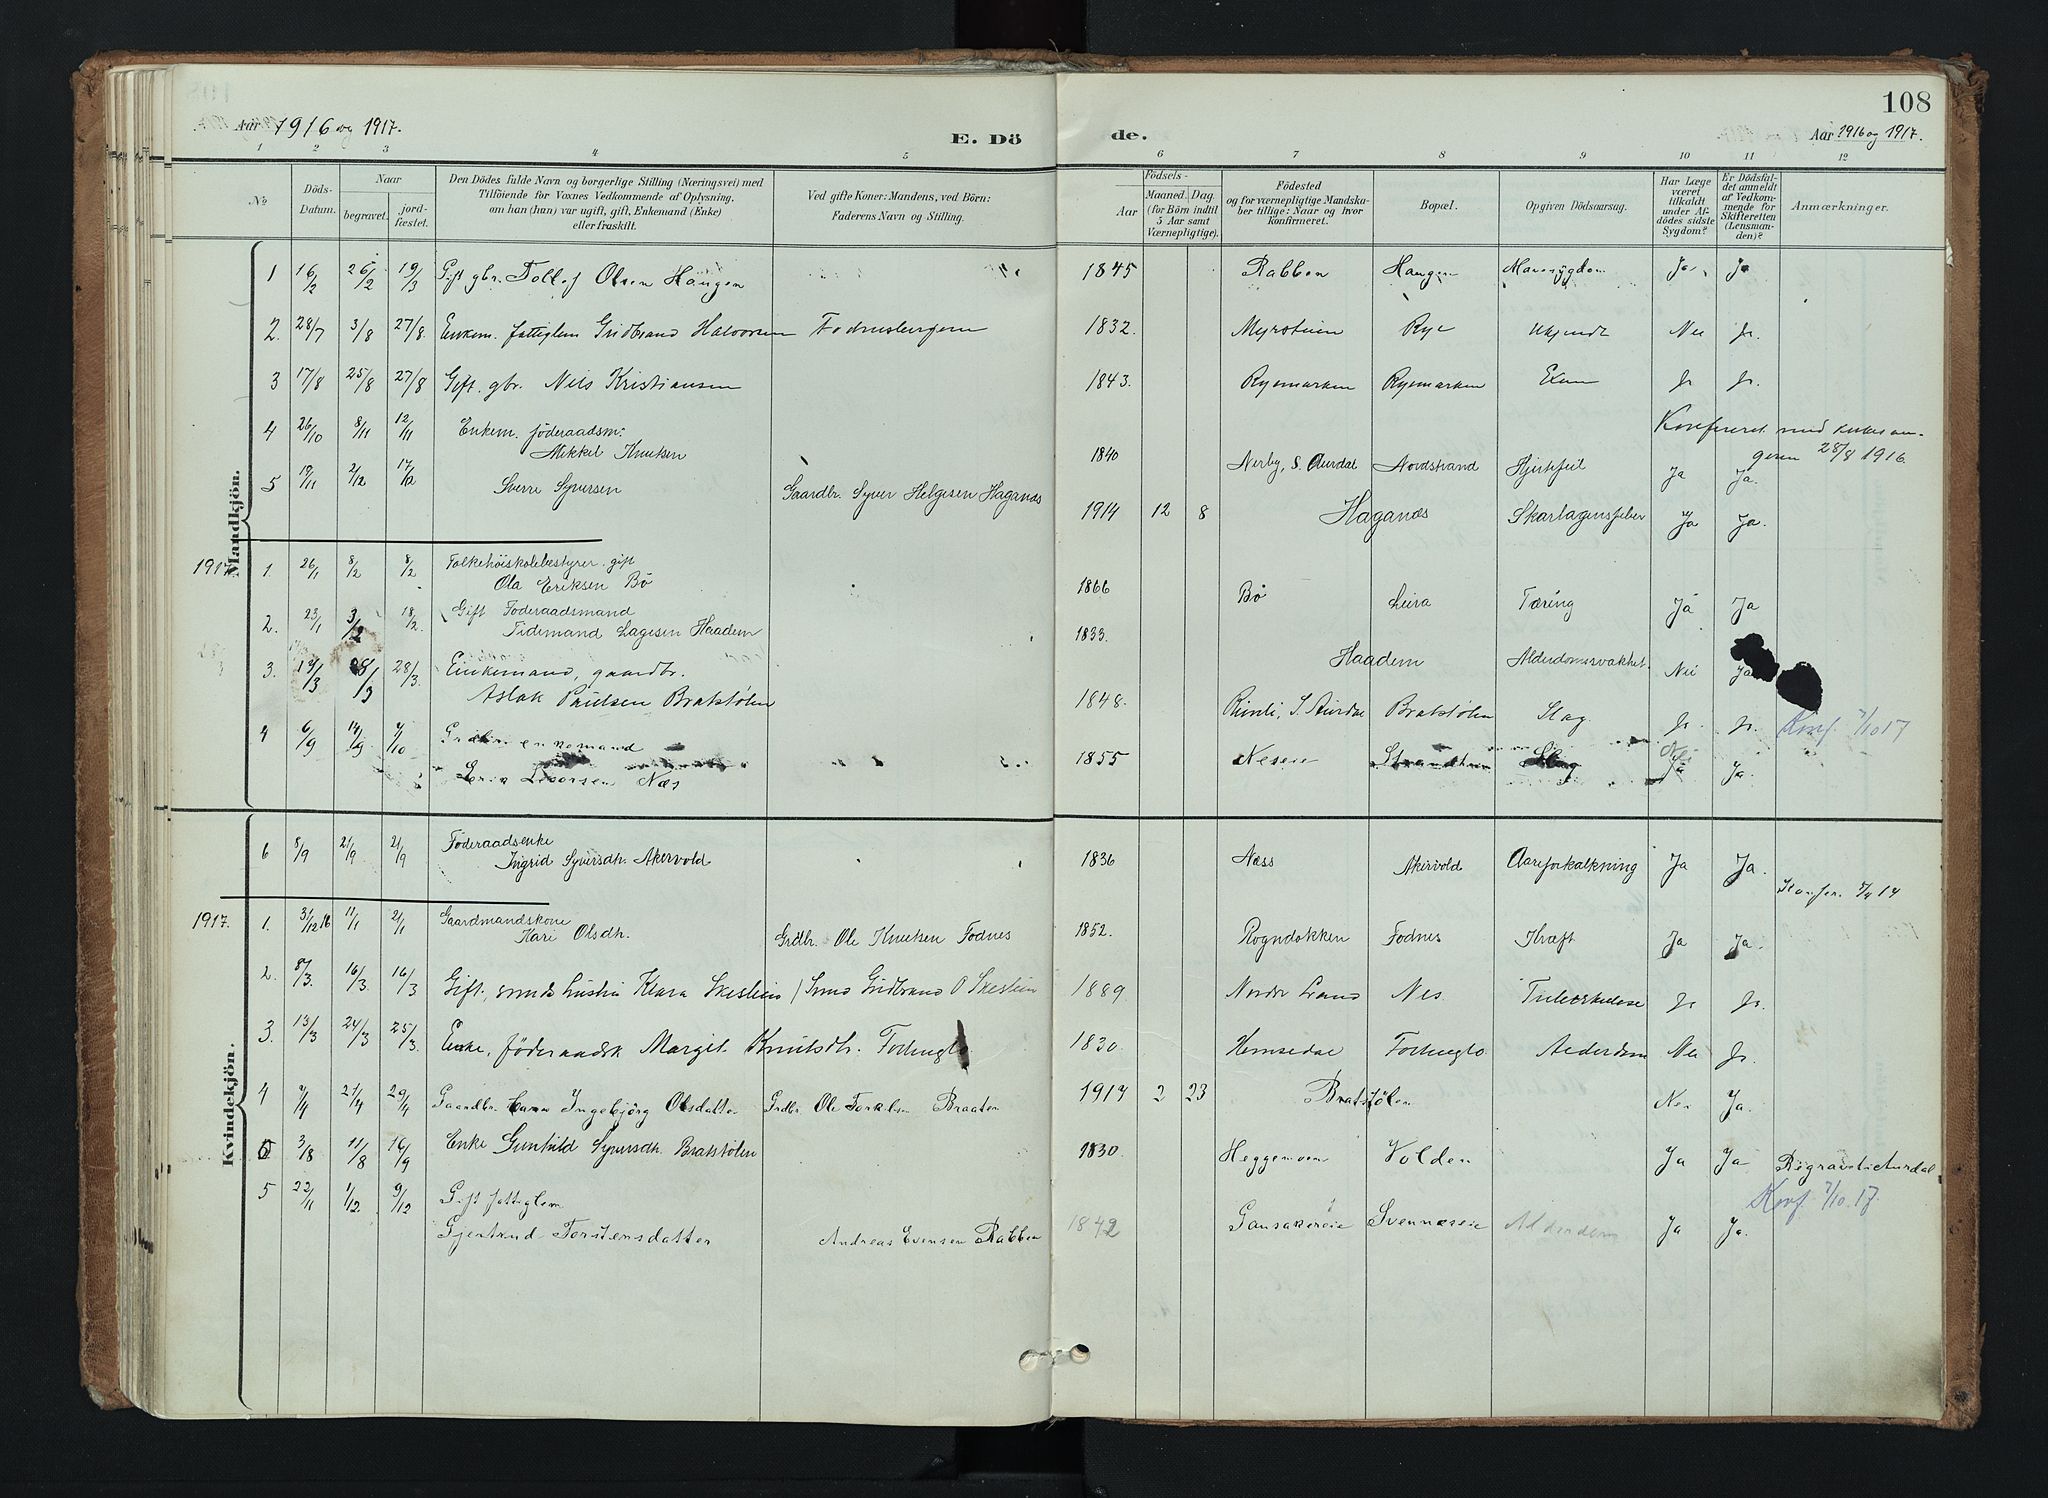 108
Aar 1916 og 1917.
E. Dö
de.
Aar 1916 og 1917.
1 2 3 4 5 6 7 8 9 10 11 12
No
Döds-Datum.
Naar
begravet.
jord-fæstet.
Den Dödes fulde Navn og borgerlige Stilling (Næringsvei) med
Tilföiende for Voxnes Vedkommende af Oplysning,
om han (hun) var ugift, gift, Enkemand (Enke)
eller fraskilt.
Ved gifte Koner: Mandens, ved Börn:
Faderens Navn og Stilling.
Födsels-
Aar
Maaned. Dag.
(for Börn indtil
5 Aar samt
Værnepligtige).
Födested
og for værnepligtige Mandska-
ber tillige: Naar og hvor
Konfirmeret.
Bopæl.
Opgiven Dödsaarsag.
Har Læge
været
tilkaldt
under Af-
dödes sidste
Sygdom?
Er Dödsfal-
det anmeldt
af Vedkom-
mende for
Skifteretten
(Lensman-
den)?
Anmærkninger.
Mandkjön.
1 16/2 26/2 19/3 Gift gbr. Tollef Olsen Haugen 1845 Rabben Haugen Mavesygdom Ja Ja
2. 28/7 3/8 27/8. Enkem. fattiglem Gudbrand Halvorsen Fodnesbergene 1832. Myrstuen Rye Ukjendt Nei Ja.
3 17/8 25/8 27/8 Gift. gbr. Nils Kristiansen 1843. Ryemarken Ryemarken Ja Ja.
4 26/10 8/11 12/11 Enkem. föderaadsm:
Mikkel Knutsen 1840 Nerby, S. Aurdal Nordstrand Hjertefeil Ja Ja.
Konfereret med
28/8 1916.
5 19/11 2/12 17/12 Sverre Syversen Gaardbr. Syver Helgesen Haganæs 1914 12 8 Haganæs Skarlagensfeber Ja Ja.
1917. 1. 26/1 8/2 8/2 Folkehöiskolebestyrer. gift
Ola Eriksen Bö 1866 Bö Leira Tæring Ja Ja
2. 23/1 3/2 18/2. Gift Föderaadsmand
Tidemand Lagesen Haadem 1833. Haadem Alderdomssvakhet Nei Ja
3. 17/3 28/3 28/3. Enkemand, gaardbr.
Aslak Paulsen Bratstölen 1848. S. Aurdal Bratstölen Slag Ja Ja.
Konf. 7/10 17
4 6/9 14/9 7/10 Grdbr. enkemand
Næs 1855 Nesen Strandheim Slag Ja Ja.
Kvindekjön.
6 8/9 21/9 21/9 Föderaadsenke
Ingrid Syversdh. Akervold 1836 Næss Akervold Aareforkalkning Ja Ja.
Konfer. 7/4 17
1917. 1. 31/12 16 11/1 21/1 Gaardmandskone
Kari Olsdh. Grdbr. Ole Knutsen Fodnes 1852. Rogndokken Fodnes Kræft Ja Ja.
2. 8/3. 16/3. 16/3 Gift, smeds hustru Klara Skeslien / Smed Gudbrand O Skeslien 1889. Nordre Land Nes Tuberkulose Ja Ja.
3. 13/3 24/3 25/3. Enke, föderaadsk Margit Knutsdh. 1830. Hemsedal Alderdom Nei Ja.
4 7/4 21/4 29/4 Gaardbr. barn Ingebjörg Olsdatter Grdbr. Ole Torkelsen Braaten 1917 2 23 Bratstölen Nei Ja.
5 3/8 11/8 16/9 Enke Gunhild Syversdh. Bratstölen 1830. Heggemoen Volden Ja Ja Begravet i Aurdal
Konf. 7/10. 17.
5 22/11 1/12 9/12 Gift fattiglem
Gjertrud Torstensdatter Andreas Evensen Rabben 1842 Gansakereie Svennæseie Alderdom Ja Ja.